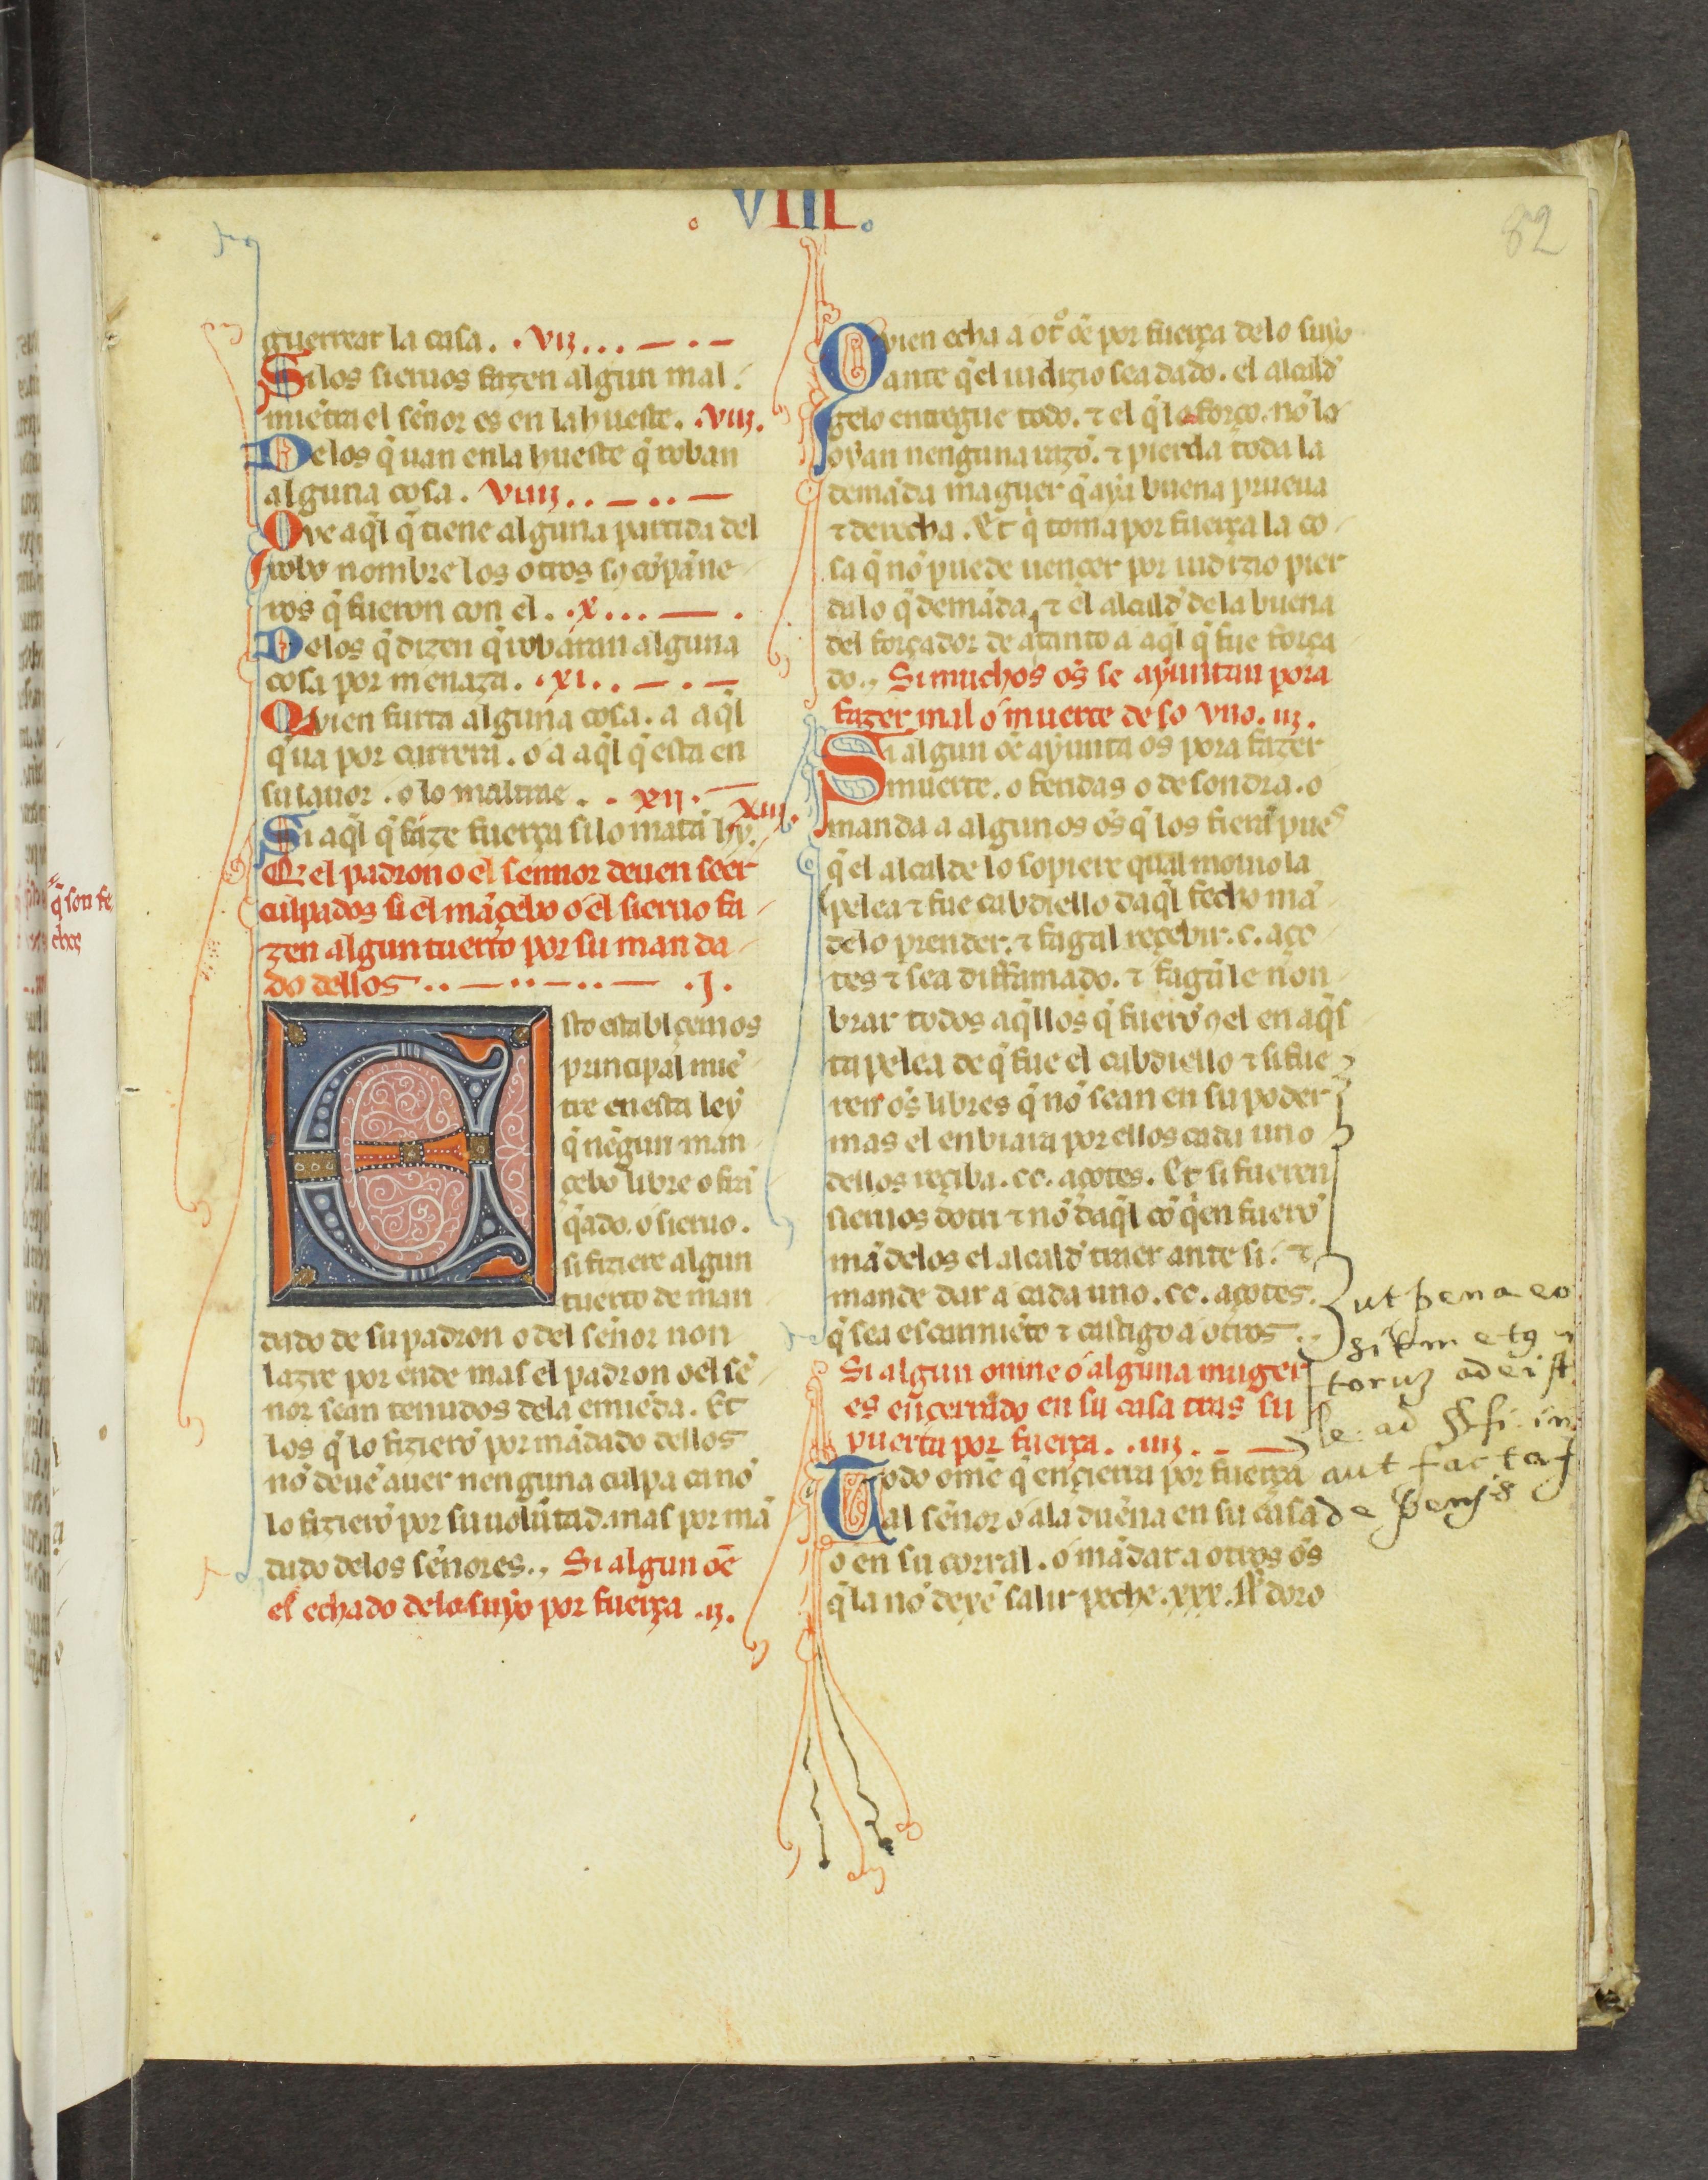 .VIII.
82
guerrear la casa. .vij...
Si los sieruos fazen algun mal.
miẽtra el señor es en la hueste. .viij.
De los q̃ uan en la hueste q̃ roban
alguna cosa. viiij..
Que aq̃l q̃ tiene alguna partida del
robo nombre los otros sꝯ cõpãne
ros q̃ fueron con el. .x...
De los q̃ dizen q̃ robaran alguna
cosa por menaza. .xi..
Quien furta alguna cosa. a aq̃l
q̃ ua por carrera. o a aq̃l q̃ esta en
su lauor. o lo maltrae. . xij.
Si aq̃l q̃ faze fuerça si lo matã hy. xiij.
Q̃ el padron o el sennor deuen seer
culpados si el mãçebo o el sieruo fa
zen algun tuerto por su manda
do dellos .j.
Esto establçemos
principal miẽ
tre en esta ley
q̃ nẽgun man
çebo libre o frã
q̃ado. o sieruo.
si fiziere algun
tuerto de man
dado de su padron o del señor non
lazre por ende mas el padron o el sẽ
nor sean tenudos dela emiẽda. Et
los q̃ lo fizierõ por mãdado dellos
nõ deuẽ auer nenguna culpa ca nõ
lo fizierõ por su uolũtad. mas por mã
dado delos señores., Si algun oẽ
es echado delo suyo por fuerça .ij.
Quien echa a ot̊ oẽ por fuerça delo suyo
ante q̃l iudizio sea dado. el alcald̃
gelo entregue todo. ⁊ el q̃ lo forço. nõ lo
oyan nenguna razõ. ⁊ pierda toda la
demãda maguer q̃ aya buena prueua
⁊ derecha. Et q̃ toma por fuerça la co
sa q̃ nõ puede uençer por iudizio pier
da lo q̃ demãda. ⁊ el alcald̃ dela buena
del forçador de atanto a aq̃l q̃ fue força
do., Si muchos oẽs se ayuntan pora
fazer mal o muerte de so uno. iij.
Si algun oẽ ayunta oẽs pora fazer
muerte. o feridas o desondra. o
manda a algunos oẽs q̃ los fierã pues
q̃ el alcalde lo sopiere qual mouio la
pelea ⁊ fue cabdiello daq̃l fecho mã
delo prender. ⁊ fagal reçebir. c. aço
tes ⁊ sea diffamado. ⁊ fagale non
brar todos aq̃llos q̃ fuerõ ꝯel en aq̃s
ta pelea de q̃ fue el cabdiello ⁊ si fue
ren oẽs libres q̃ nõ sean en su poder
mas el enbiara por ellos cada uno
dellos reçiba. cc. açotes. Et si fueren
sieruos dotri ⁊ nõ daq̃l cõ q̃en fuerõ
mãdelos el alcald̃ traer ante si. ⁊
mande dar a cada uno. cc. açotes.
q̃ sea escarmiẽto ⁊ castigo a otros.
Si algun omne o alguna muger
es ençerrado en su casa tras su
puerta por fuerça. .iiij.
Todo ome q̃ ençierra por fuerça
al señor o ala dueña en su casa
o en su corral. o mãdar a otros oẽs
q̃ la nõ dexẽ salir peche. xxx. ss̃ doro
ut pena eo
aut factas
de penys
q̃ son fe